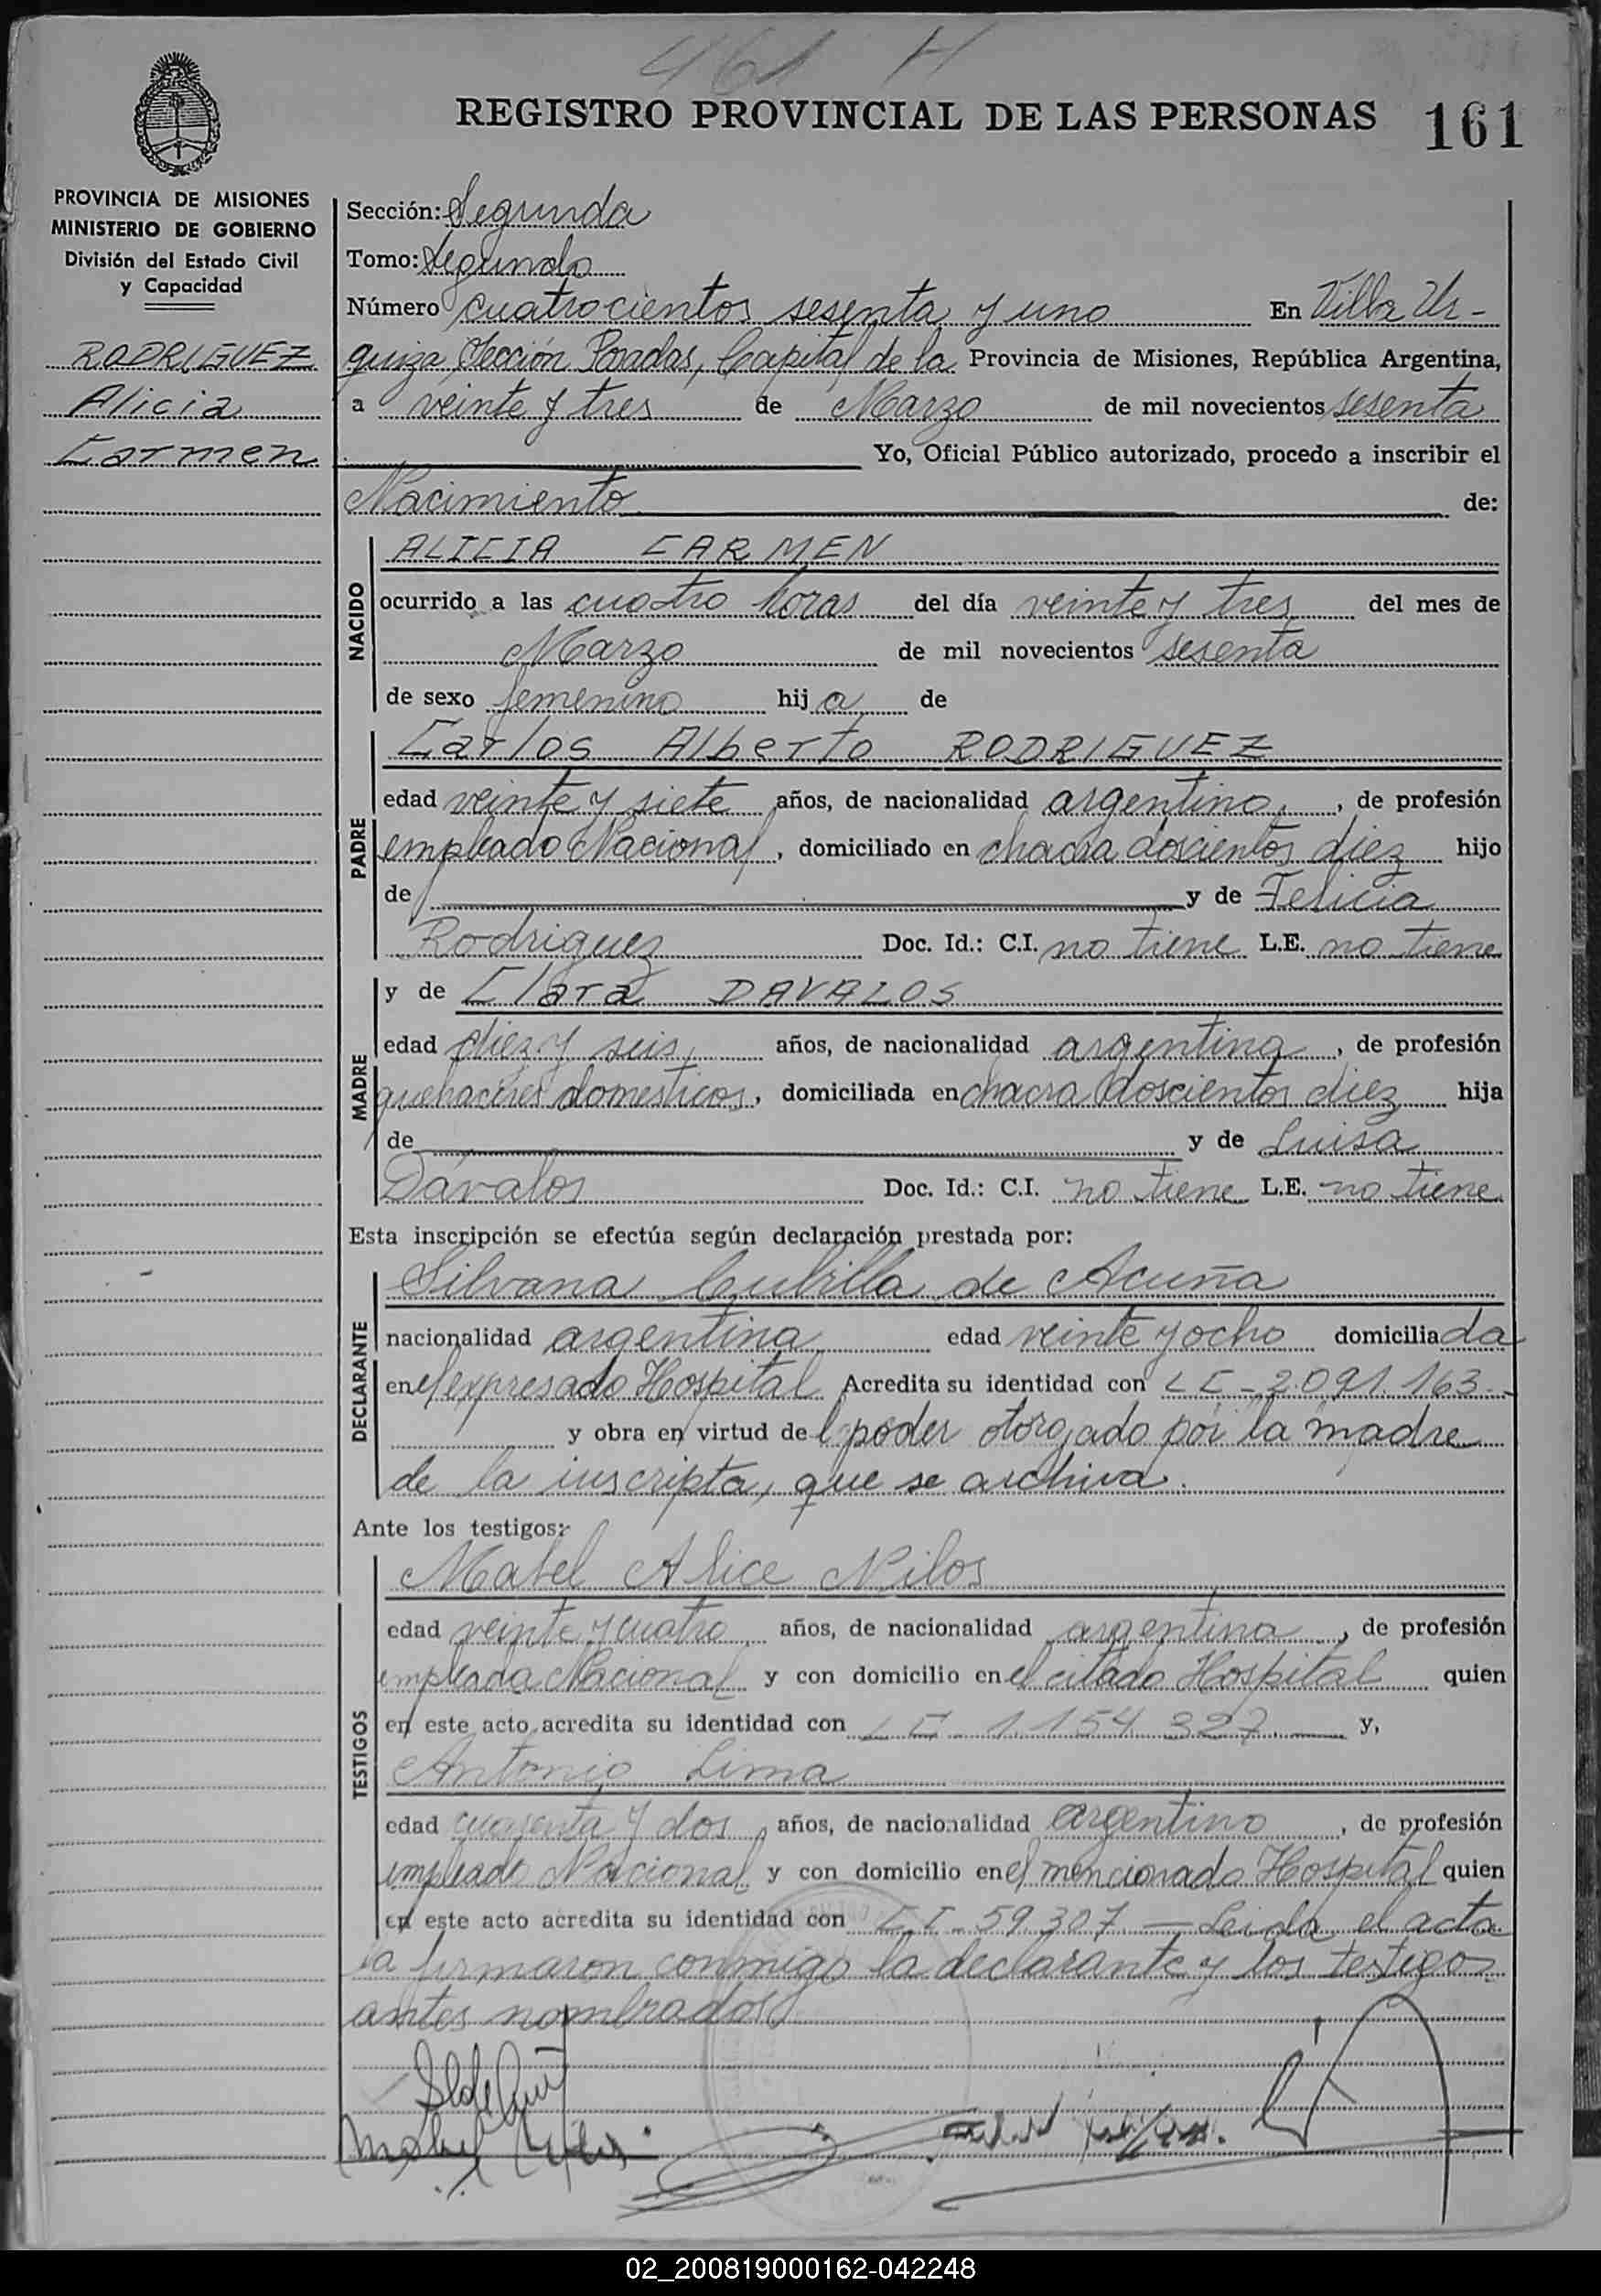 461 H
REGISTRO PROVINCIAL DE LAS PERSONAS 161
PROVINCIA DE MISIONES
MINISTERIO DE GOBIERNO
División del Estado Civil
y Capacidad
RODRIGUEZ
Alicia
Carmen
Sección: Segunda
Tomo: Segundo
Número cuatrocientos sesenta y uno En Villa Ur-
quiza, Sección Posadas, Capital de la Provincia de Misiones, República Argentina,
a veinte y tres de Marzo de mil novecientos sesenta
Yo, Oficial Público autorizado, procedo a inscribir el
Nacimiento de:
NACIDO
ALICIA CARMEN
ocurrido a las cuatro horas del día veinte y tres del mes de
Marzo de mil novecientos sesenta
de sexo femenino hija de
PADRE
Carlos Alberto RODRIGUEZ
edad veinte y siete años, de nacionalidad argentino, de profesión
empleado Nacional, domiciliado en chacra doscientos diez hijo
de y de Felicia
Rodriguez Doc. Id.: C.I. no tiene L.E. no tiene
MADRE
y de Clara DAVALOS
edad diez y seis años, de nacionalidad argentina, de profesión
quehaceres domesticos, domiciliada en chacra doscientos diez hija
de y de Luisa
Dávalos Doc. Id.: C.I. no tiene L.E. no tiene
Esta inscripción se efectúa según declaración prestada por:
DECLARANTE
Silvana Cubilla de Acuña
nacionalidad argentina edad veinte y ocho domiciliada
en el expresado Hospital Acredita su identidad con L C - 2.091.163.-
y obra en virtud del poder otorgado por la madre
de la inscripta, que se archiva.
Ante los testigos:
TESTIGOS
Mabel Alice Nilos
edad veinte y cuatro años, de nacionalidad argentina, de profesión
empleada Nacional y con domicilio en el citado Hospital quien
en este acto acredita su identidad con L C - 1.154.327. y,
Antonio Lima
edad cuarenta y dos años, de nacionalidad argentino, de profesión
empleado Nacional y con domicilio en el mencionado Hospital quien
en este acto acredita su identidad con C I - 59.307 — Leida el acta
la firmaron conmigo la declarante y los testigos
antes nombrados
02_200819000162-042248